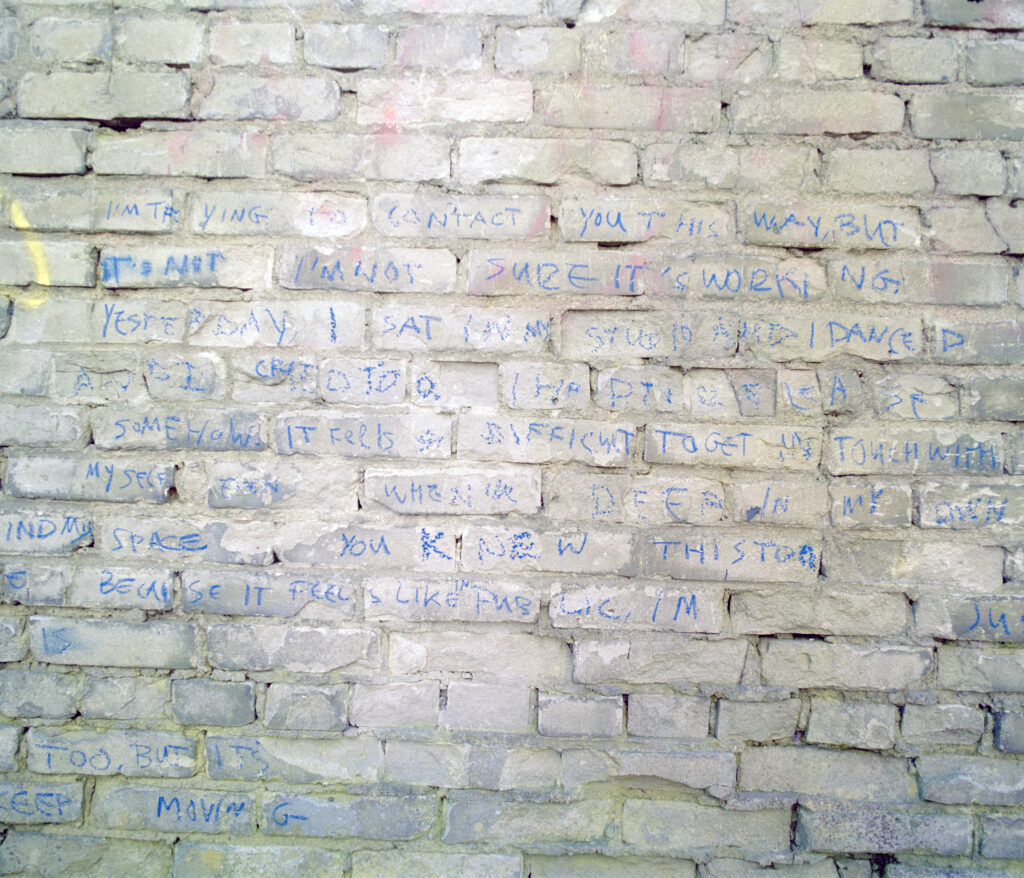 I'M TRYING TO CONTACT YOU THIS WAY, BUT
IT'S NOT I'M NOT SURE IT'S WORKING
YESTERDAY, I SAT IN MY STUDIO AND I DANCED
AND I CRIED TOO. I HAD
SOMEHOW IT FEELS DIFFICULT TO GET IN TOUCH WITH
MYSELF EVEN WHEN I'M DEEP IN MY OWN
IND MY SPACE YOU KNEW THIS TOO
BECAUSE IT FEELS LIKE IN PUBLIC, I'M JU
IS
TOO, BUT IT'S
KEEP MOVING